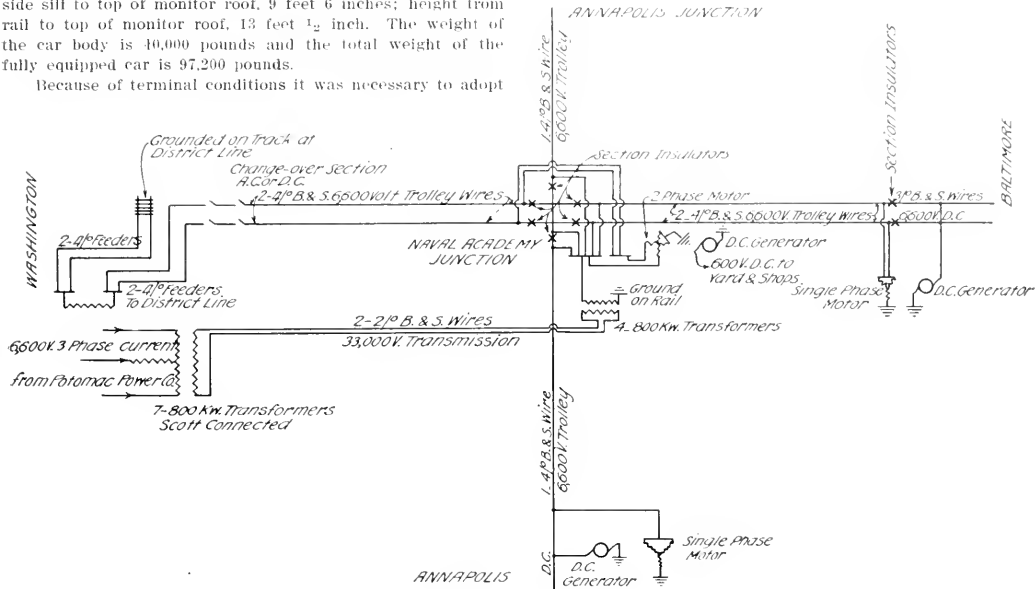 side sill to top of monitor roof, 9 feet 6 inches; height from
rail to top of monitor roof, 13 feet ½ inch. The weight of
the car body is 40,000 pounds and the total weight of the
fully equipped car is 97,200 pounds.
Because of terminal conditions it was necessary to adopt
ANNAPOLIS JUNCTION
1-4/° B. & S. Wire
6,600V. Trolley
Section Insulators
BALTIMORE
Grounded on Track at
District Line
Change-over Section
A.C. or D.C.
2-4/° B. & S. 6,600 Volt Trolley Wires
Section Insulators
2 Phase Motor
3/° B. & S. Wires
2-4/° B. & S. 6,600V. Trolley Wires
6600V. D.C
WASHINGTON
2-4/° Feeders
NAVAL ACADEMY
JUNCTION
D.C. Generator
600V. D.C. to
Yard & Shops
Single Phase
Motor
D.C. Generator
2-4/° Feeders
To District Line
Ground
on Rail
2-2/° B. & S. Wires
33,000V. Transmission
4-800 Kw. Transformers
6,600V. 3 Phase Current
from Potomac Power Co.
7-800 Kw. Transformers
Scott Connected
1-4/° B. & S. Wire
6,600V. Trolley
Single Phase
Motor
D.C.
D.C.
Generator
ANNAPOLIS